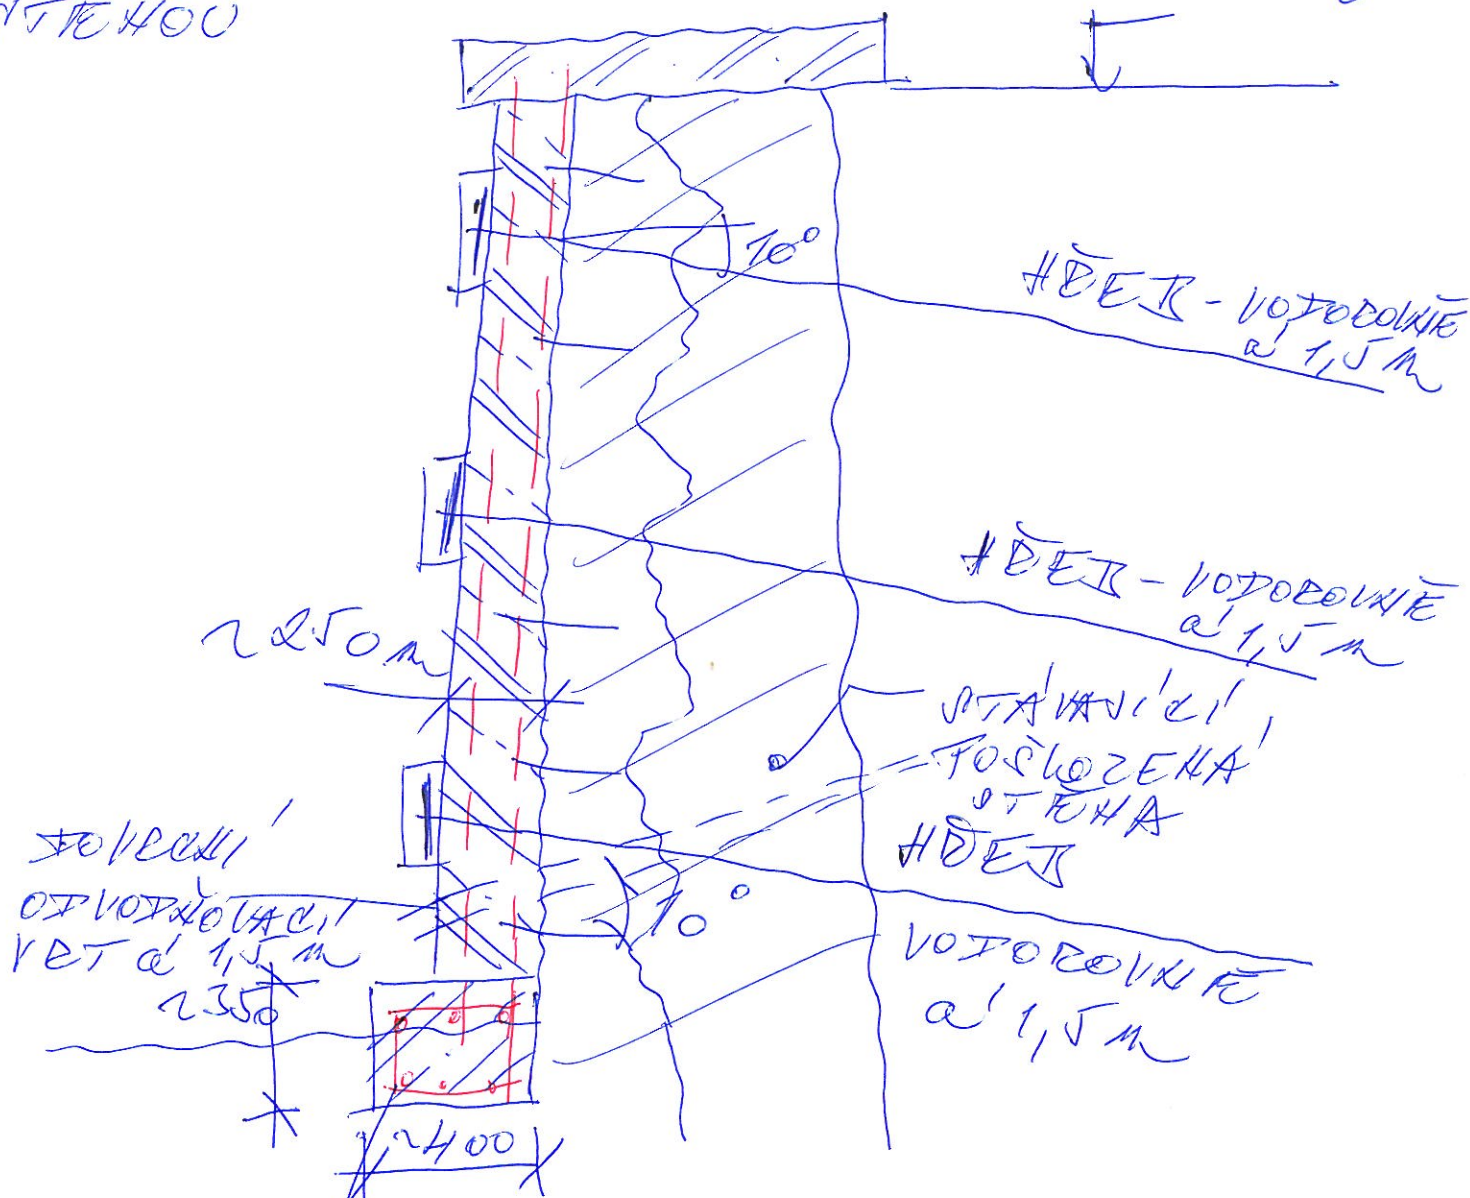 STĚNOU
10°
HŘEB - VODOROVNĚ
á 1,5 m
HŘEB - VODOROVNĚ
á 1,5 m
~250 m
STÁVAJÍCÍ
POŠKOZENÁ
STĚNA
HŘEB
VODOROVNĚ
á 1,5 m
10°
ODVODŇOVACÍ
VRT á 1,5 m
~350
~400